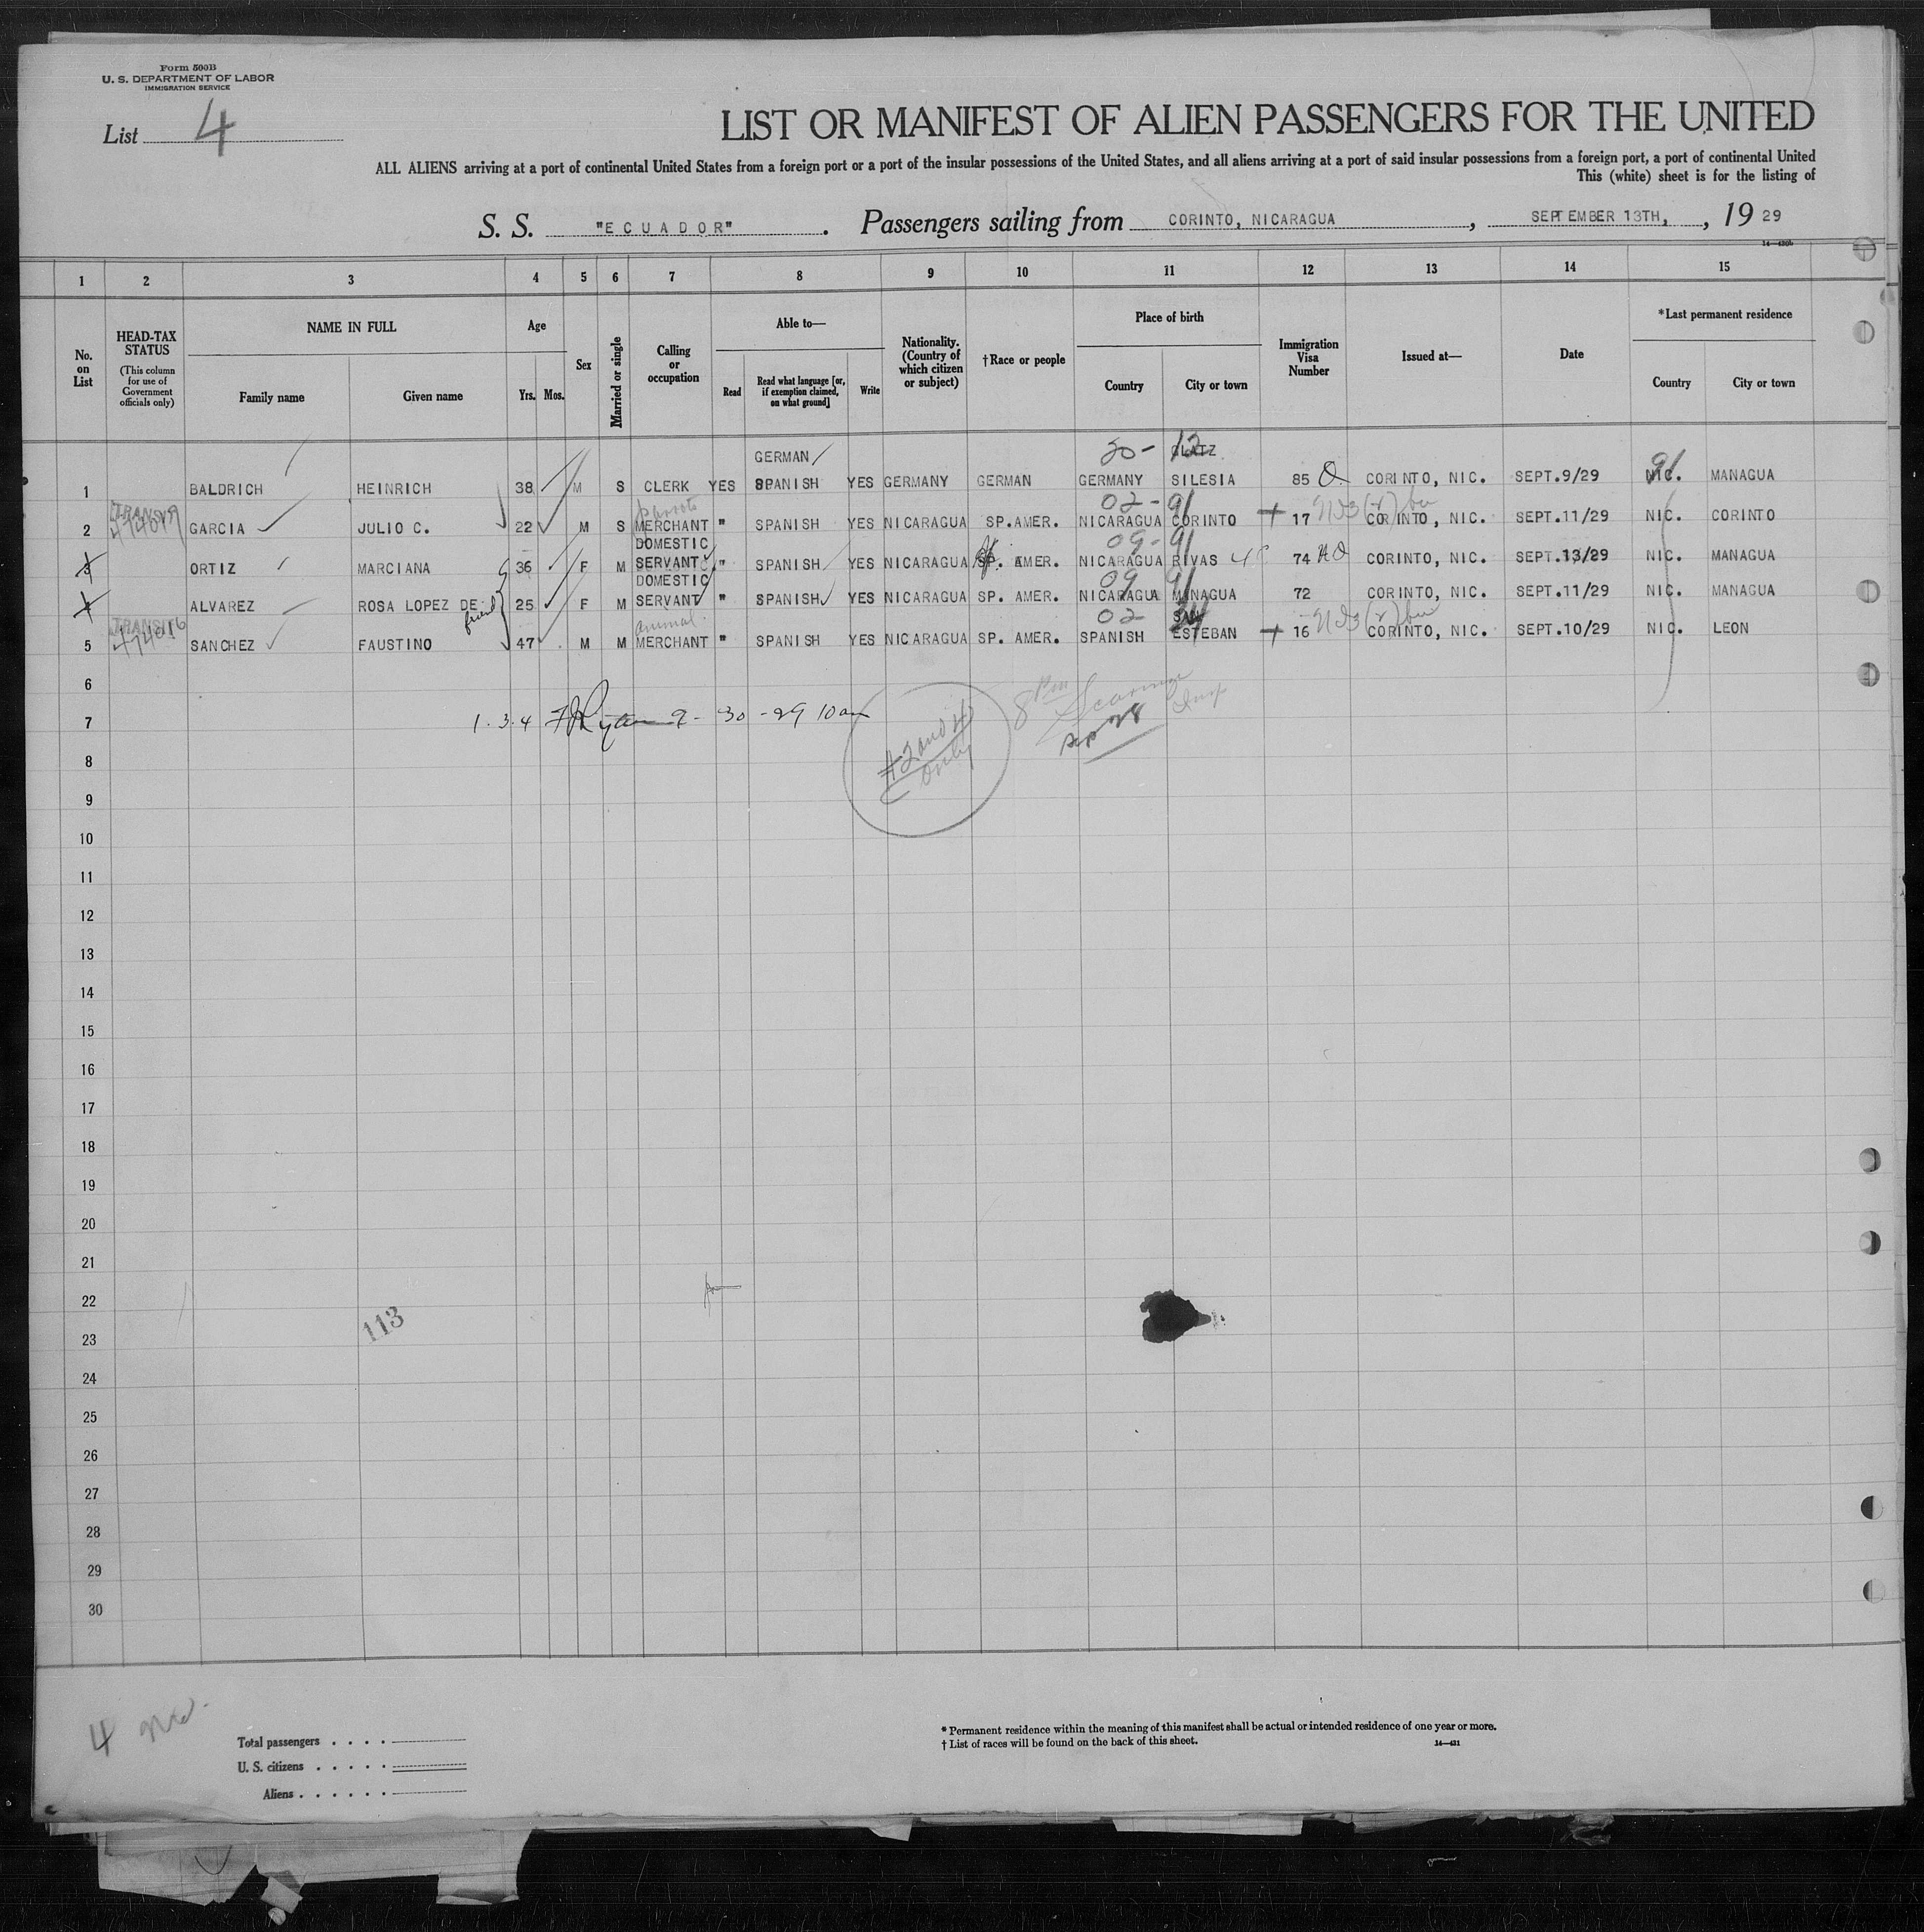 Form 500B
U. S. DEPARTMENT OF LABOR
IMMIGRATION SERVICE
List 4
LIST OR MANIFEST OF ALIEN PASSENGERS FOR THE UNITED
ALL ALIENS arriving at a port of continental United States from a foreign port or a port of the insular possessions of the United States, and all aliens arriving at a port of said insular possessions from a foreign port, a port of continental United
This (white) sheet is for the listing of
S. S. "ECUADOR". Passengers sailing from CORINTO, NICARAGUA, SEPTEMBER 13TH, , 19 29
1 2 3 4 5 6 7 8 9 10 11 12 13 14 15
No. on List
HEAD-TAX STATUS
(This column for use of Government officials only)
NAME IN FULL
Family name Given name
Age
Yrs. Mos.
Sex
Married or single
Calling or occupation
Able to—
Read
Read what language [or, if exemption claimed, on what ground]
Write
Nationality. (Country of which citizen or subject)
†Race or people
Place of birth
Country City or town
Immigration Visa Number
Issued at—
Date
*Last permanent residence
Country City or town
GERMAN 30- 12 GLATZ
1 BALDRICH HEINRICH 38 M S CLERK YES SPANISH YES GERMANY GERMAN GERMANY SILESIA 85 CORINTO, NIC. SEPT.9/29 NIC. 91 MANAGUA
TRANSIT parrots 02-91
2 GARCIA JULIO C. 22 M S MERCHANT " SPANISH YES NICARAGUA SP.AMER. NICARAGUA CORINTO 17 CORINTO, NIC. SEPT.11/29 NIC. CORINTO
DOMESTIC 09-91
3 ORTIZ MARCIANA 36 F M SERVANT " SPANISH YES NICARAGUA SP. AMER. NICARAGUA RIVAS 74 CORINTO, NIC. SEPT.13/29 NIC. MANAGUA
DOMESTIC 09 91
4 ALVAREZ ROSA LOPEZ DE friend 25 F M SERVANT " SPANISH YES NICARAGUA SP. AMER. NICARAGUA MANAGUA 72 CORINTO, NIC. SEPT.11/29 NIC. MANAGUA
TRANSIT 474016 animal 02 SAN
5 SANCHEZ FAUSTINO 47 M M MERCHANT " SPANISH YES NICARAGUA SP. AMER. SPANISH ESTEBAN 16 CORINTO, NIC. SEPT.10/29 NIC. LEON
6
7 1.3.4 Ryan 9-30-29 10am
#2 and # only
8
9
10
11
12
13
14
15
16
17
18
19
20
21
22
23
113
24
25
26
27
28
29
30
4
Total passengers
U. S. citizens
Aliens
* Permanent residence within the meaning of this manifest shall be actual or intended residence of one year or more.
† List of races will be found on the back of this sheet.
14—421